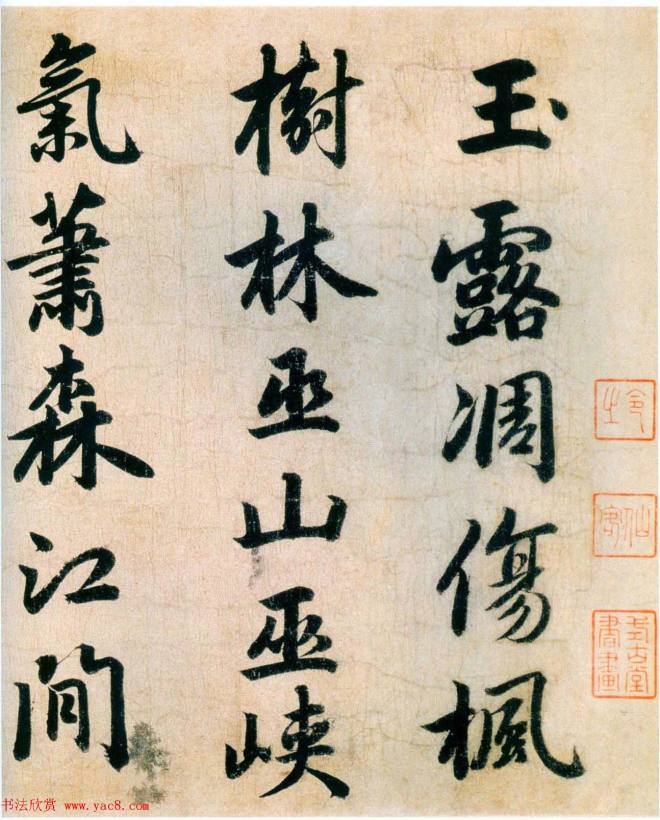 玉露凋傷楓
樹林巫山巫峽
氣蕭森江間
書畫
书法欣赏 www.yac8.com